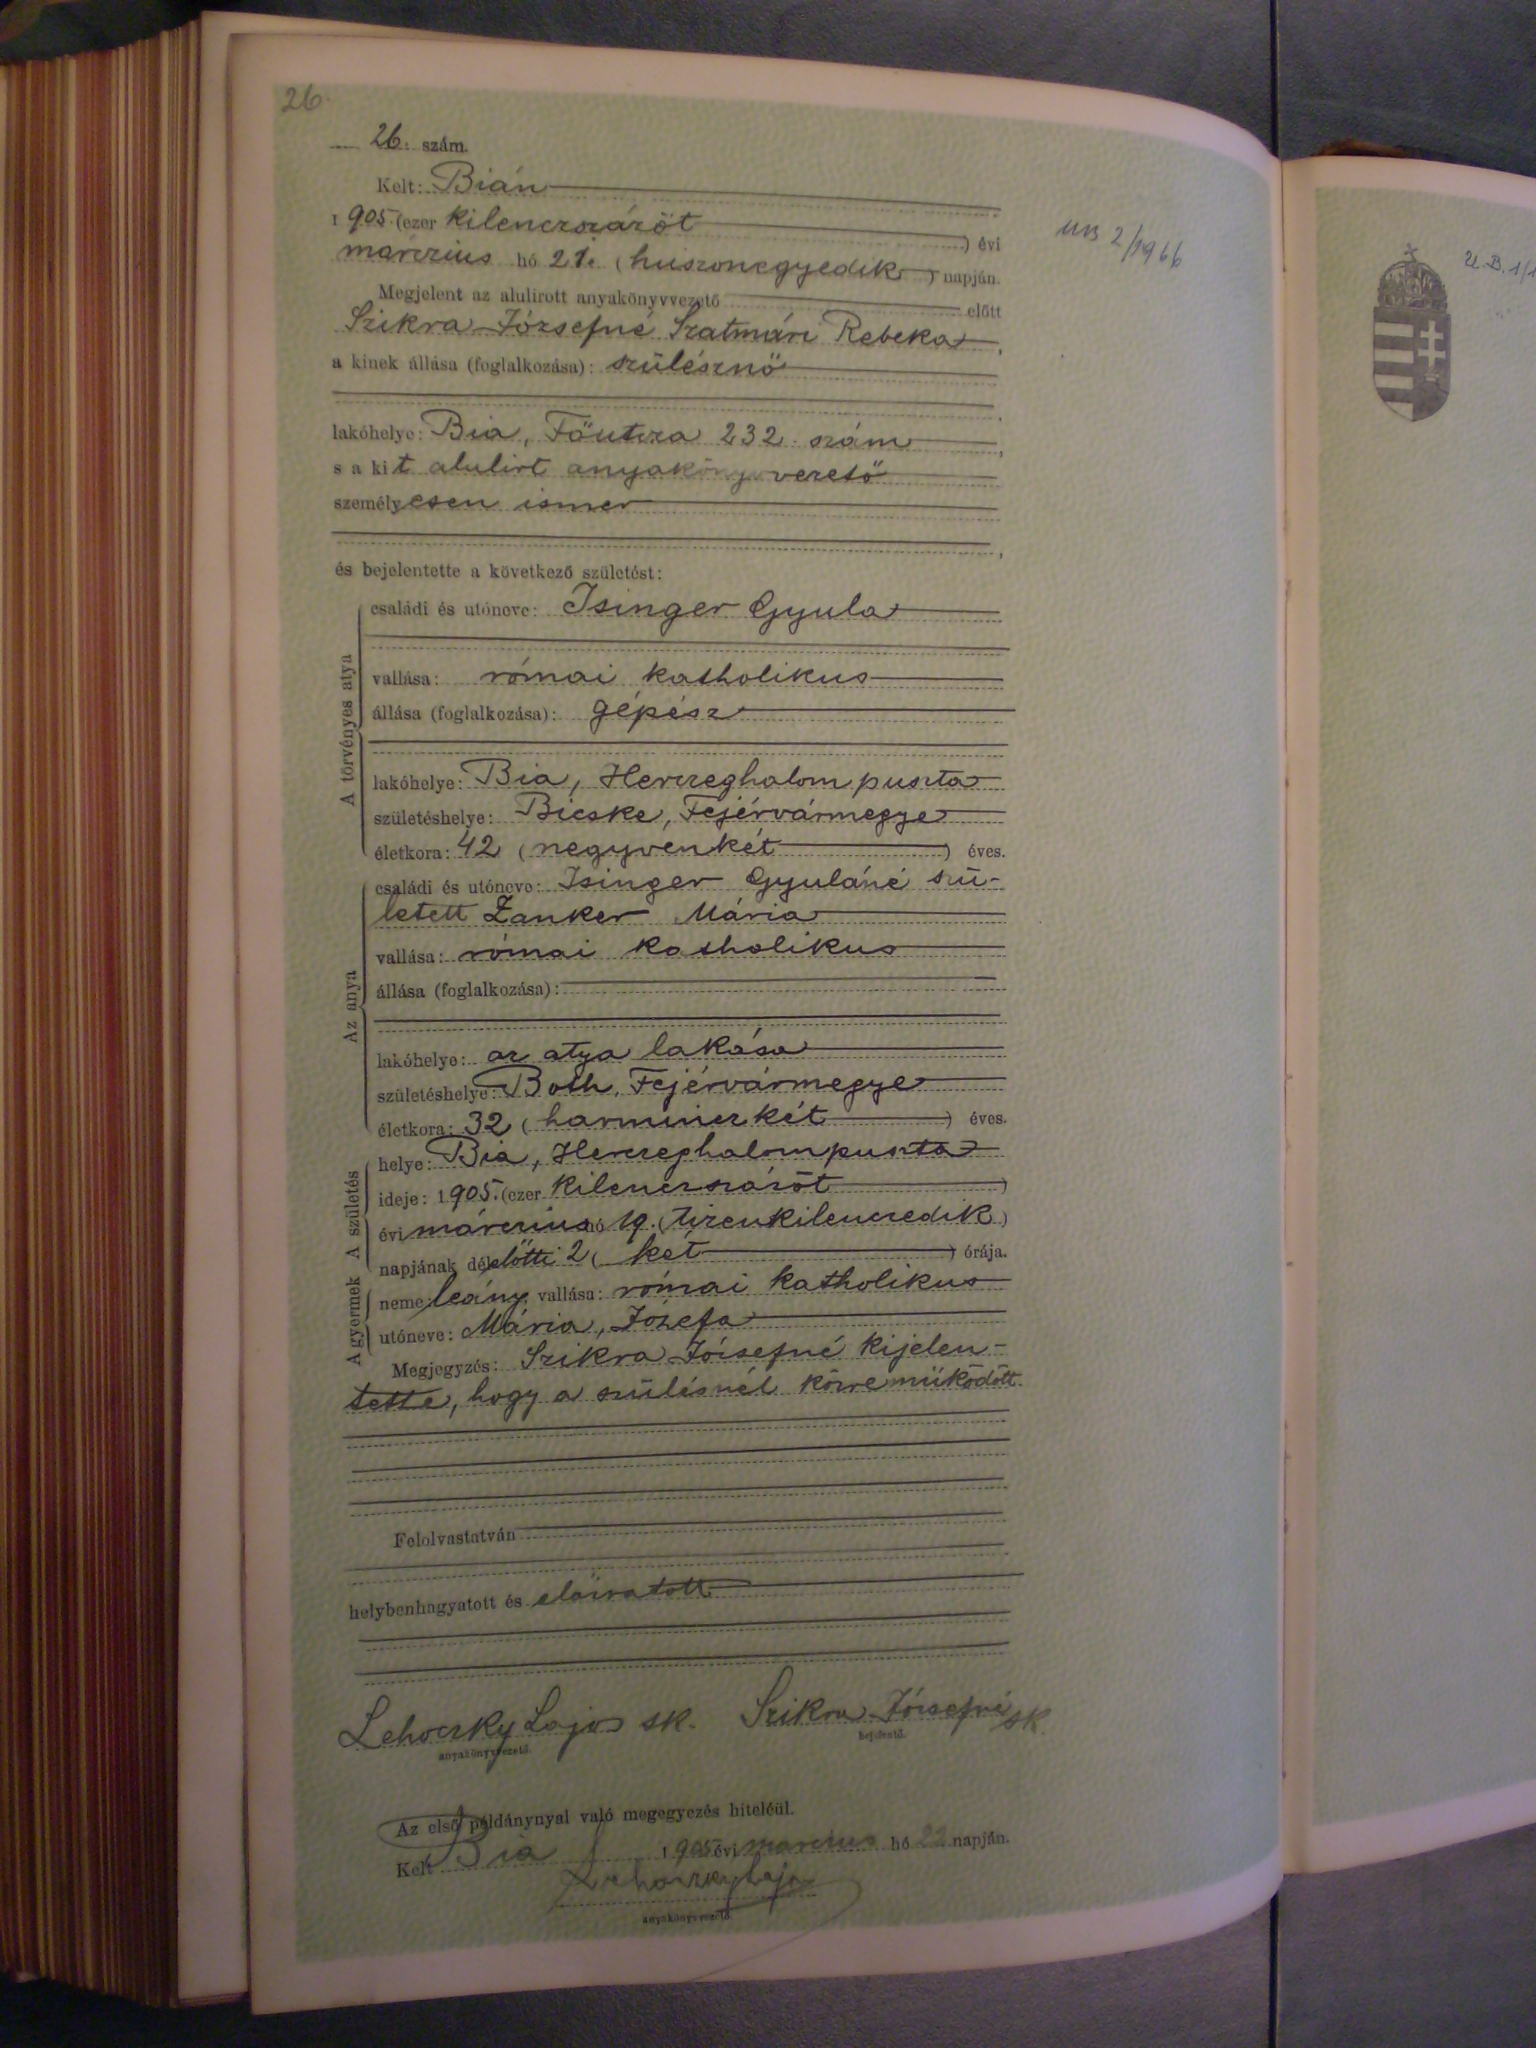 26.
26. szám.
Kelt: Bián
1905. (ezer kilenczszázöt ) évi
márczius hó 21. (huszonegyedik) napján.
Megjelent az alulirott anyakönyvvezető előtt
Szikra Józsefné Szatmári Rebeka,
a kinek állása (foglalkozása): szülésznő
lakóhelye: Bia, Főutcza 232. szám,
s a kit alulirt anyakönyvvezető
személyesen ismer
és bejelentette a következő születést:
A törvényes atya
családi és utóneve: Isinger Gyula
vallása: római katholikus
állása (foglalkozása): gépész
lakóhelye: Bia, Herczeghalom puszta
születéshelye: Bicske, Fejérvármegye
életkora: 42 (negyvenkét ) éves.
Az anya
családi és utóneve: Isinger Gyuláné szü-
letett Zanker Mária
vallása: római katholikus
állása (foglalkozása):
lakóhelye: az atya lakása
születéshelye: Both, Fejérvármegye
életkora: 32 (harminczkét ) éves.
A születés
helye: Bia, Herczeghalompuszta
ideje: 1905. (ezer kilenczszázöt )
évi márczius hó 19. (tizenkilenczedik)
napjának délelőtti 2 (két ) órája.
A gyermek
neme: leány, vallása: római katholikus
utóneve: Mária, Józefa
Megjegyzés: Szikra Józsefné kijelen-
tette, hogy a szülésnél közreműködött.
Felolvastatván
helybenhagyatott és aláiratott
Lehoczky Lajos sk. Szikra Józsefné sk.
anyakönyvvezető. bejelentő.
Az első példánynyal való megegyezés hiteléül.
Kelt Bia 1905 évi márczius hó 22 napján.
Lehoczky Lajos
anyakönyvvezető.
2/1966
U.B. 1/1